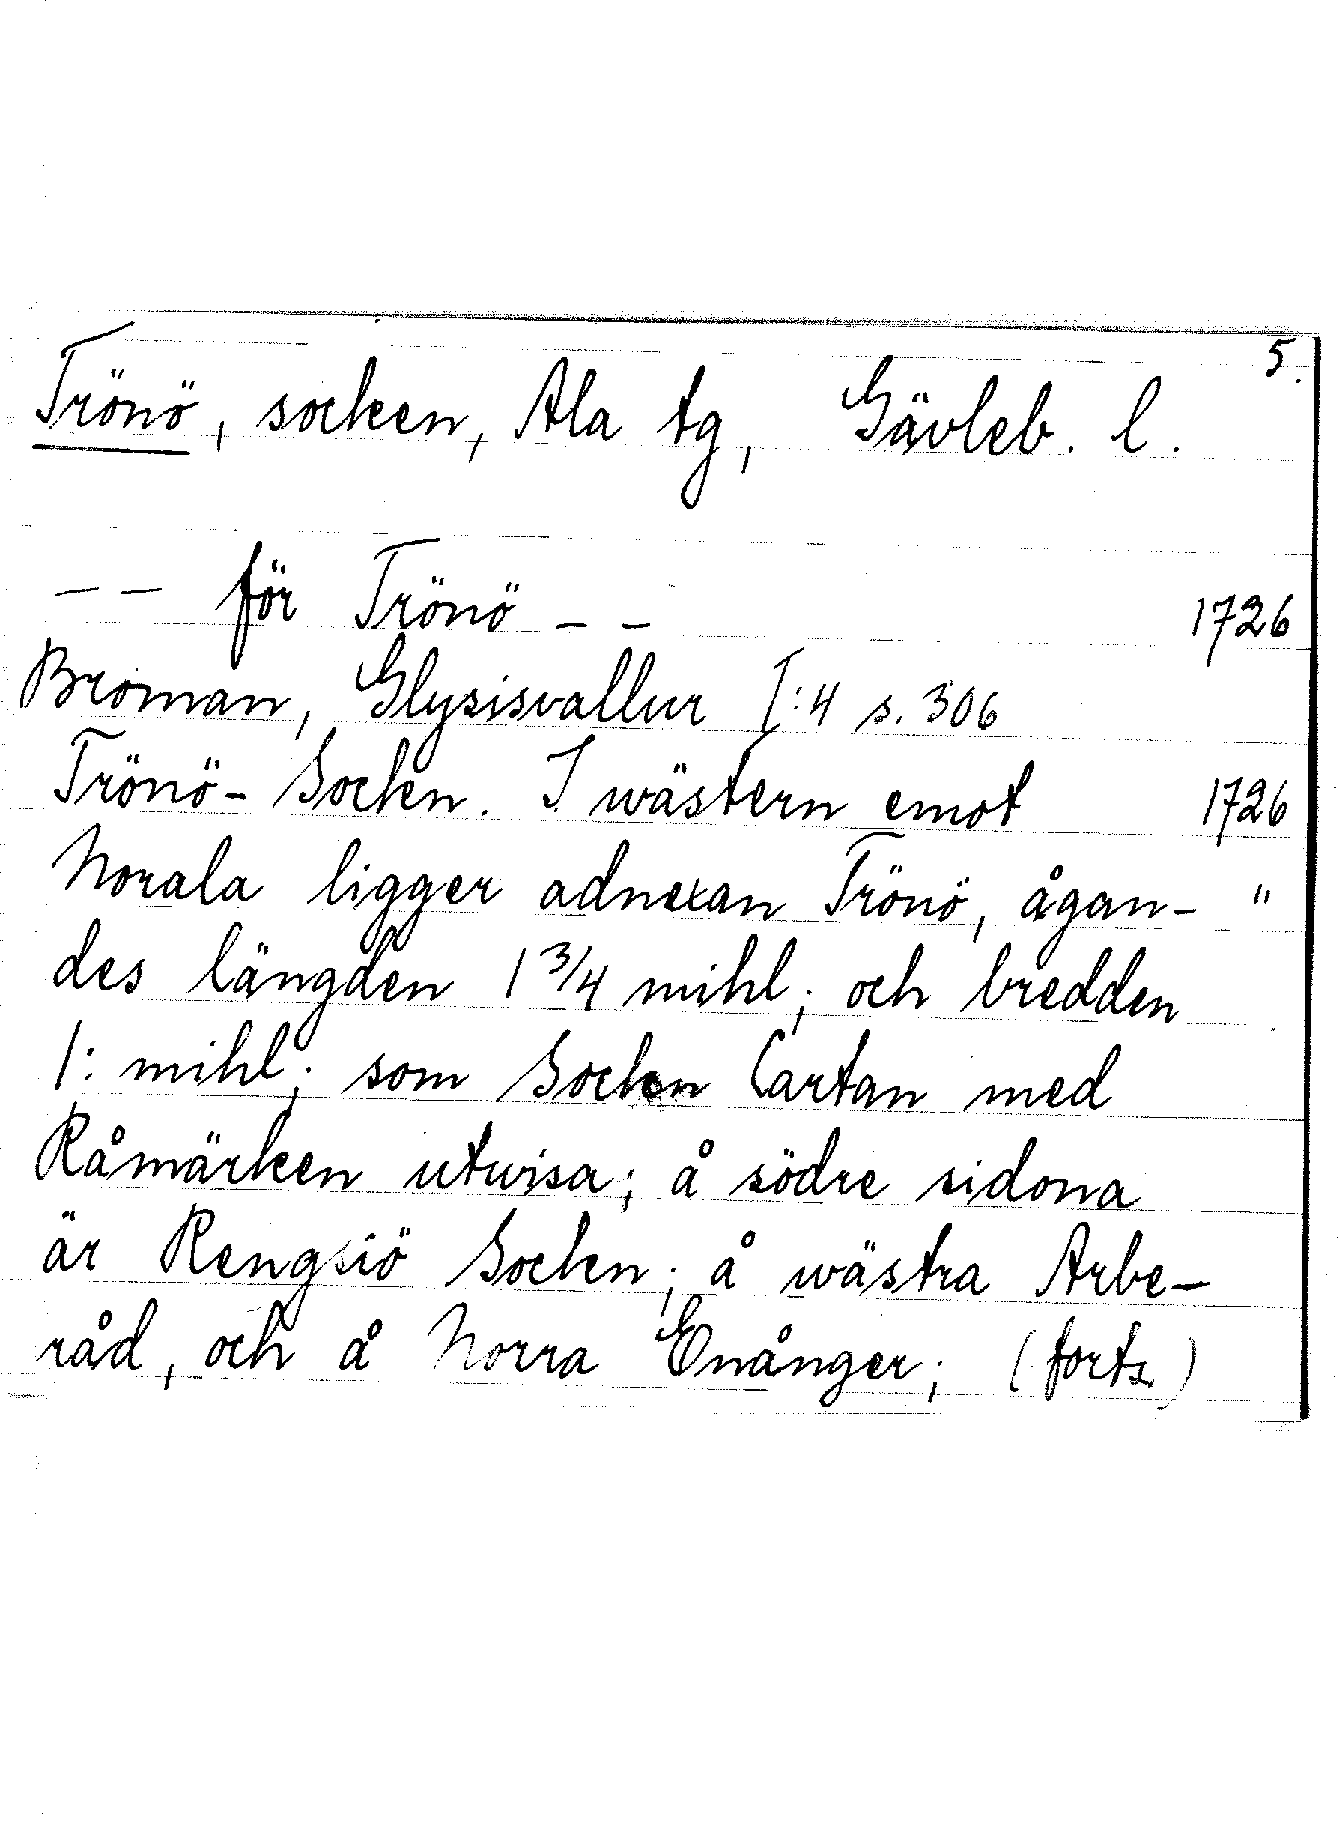 5.
Trönö, socken, Ala tg, Gävleb. l.
– – för Trönö – – 1726
Broman, Glysisvallur I:4 s. 306
Trönö- Socken. I wästern emot 1726
Norala ligger adnexan Trönö, ågan- "
des längden 1 3/4 mihl; och bredden
1: mihl; som Socken Cartan med
Råmärken utwisa; å södre sidona
är Rengsiö Socken; å wästra Arbe-
råd, och å Norra Enånger; (forts.)